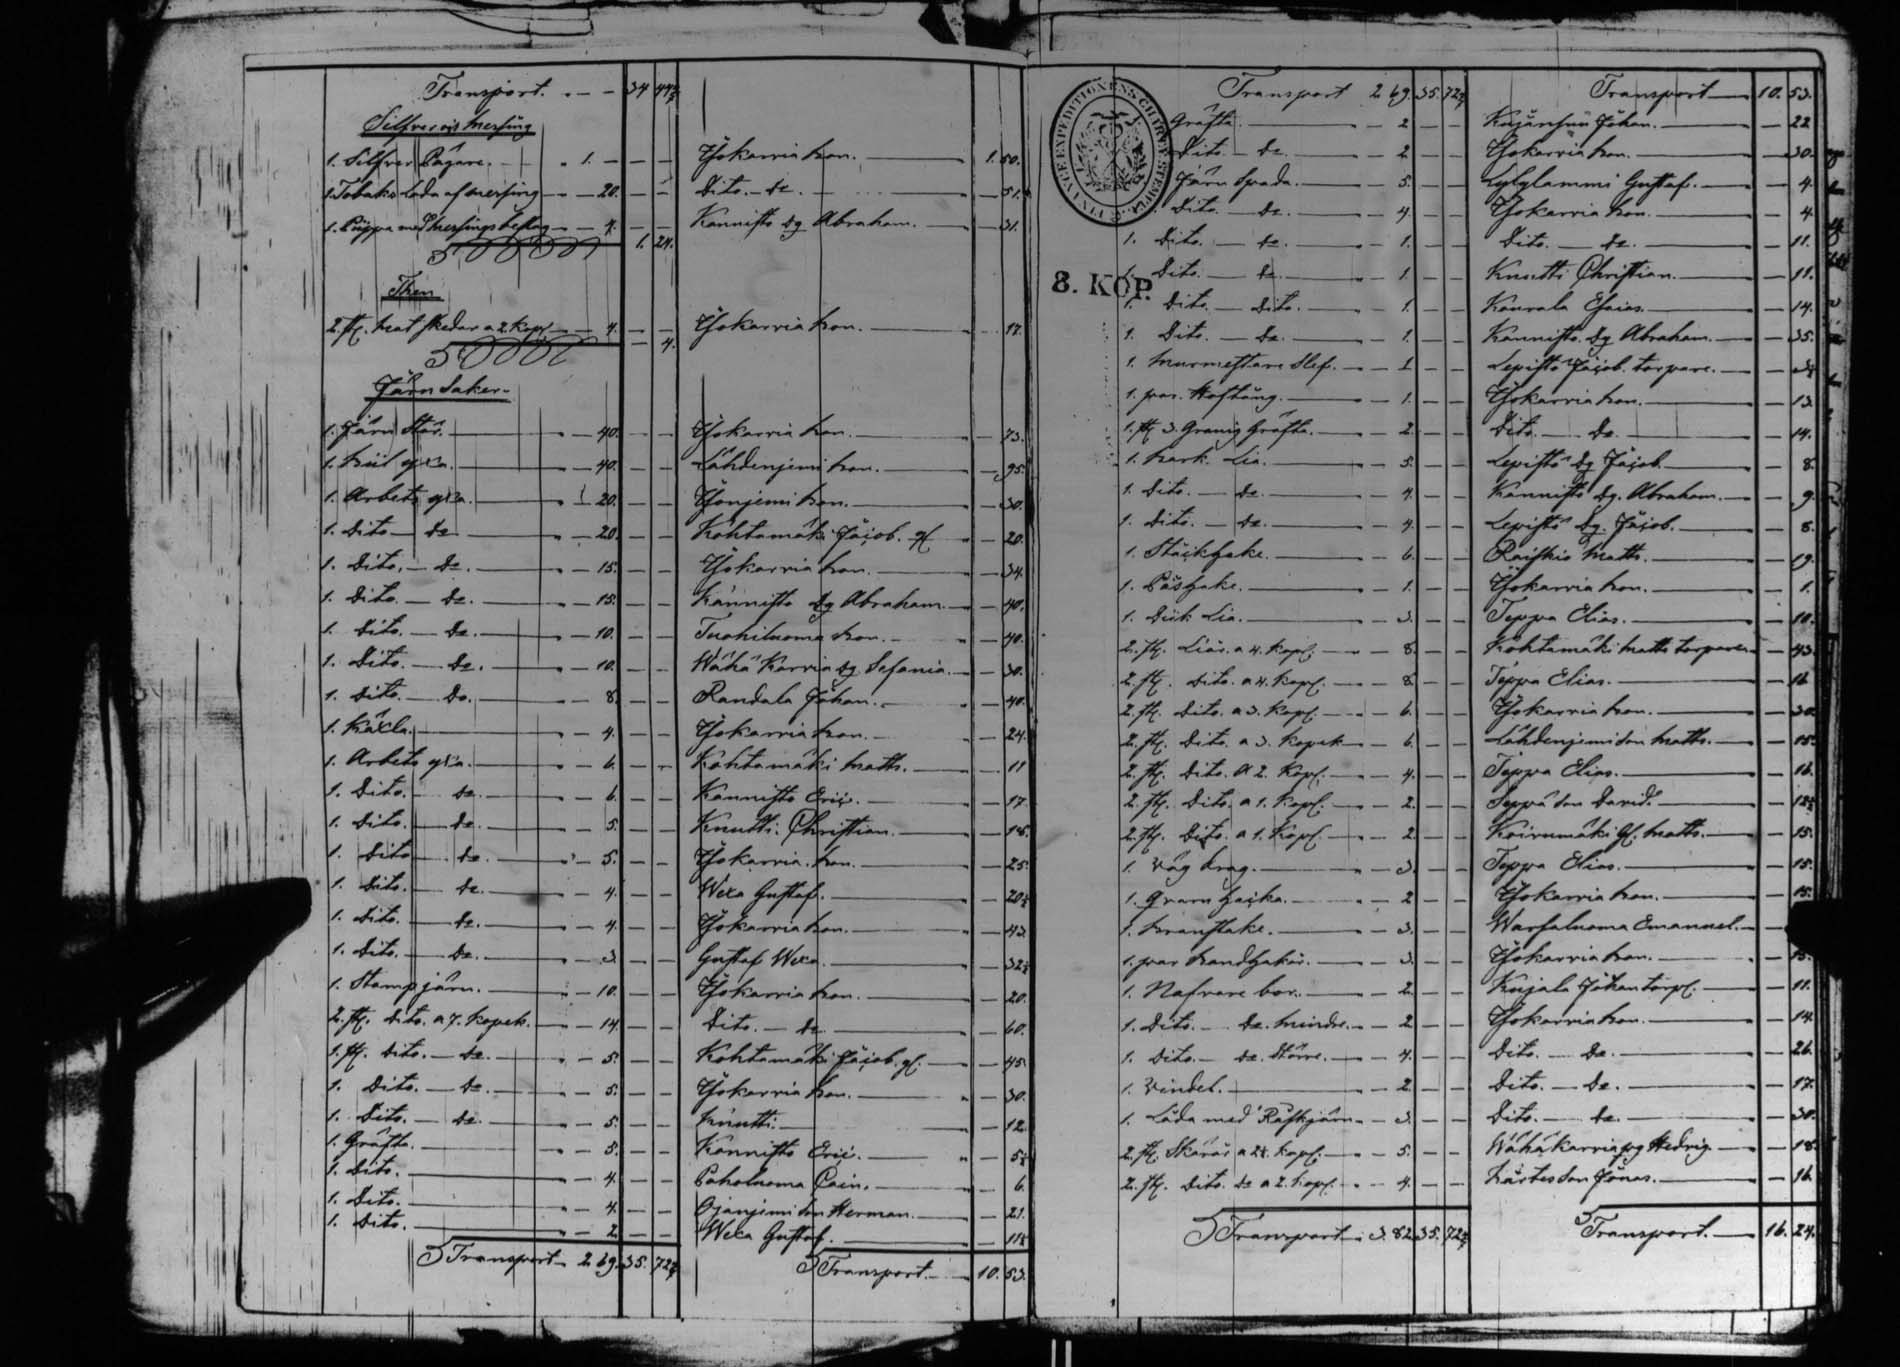 Transport. 34 47½
Silfver och Messing
1. Silfver Bägare. 1. Yokarvia hon. 1. 50.
1. Tobaks Låda af messing 20. Dito. De. 51.
1. Pijppa med Messings beslag 4. 1. 24. Kannisto dg Abraham. 31.
Then
2. st. mat skedar a 2. kop. 4. 4. Yokarvia hon. 17.
Järn Saker.
1. Järn Stör. 40. Yokarvia hon. 73.
1. yxa. 40. Lähdenjemi hon. 95.
1. Arbets yxa. 20. hon. 30.
1. Dito De 20. Kohtamäki Jacob. 20.
1. Dito. De. 15. Yokarvia hon. 34.
1. Dito. De. 15. Kannisto dg Abraham. 40.
1. Dito. De. 10. Tuohiluoma hon. 40.
1. Dito. De. 10. Wähä Karvia dg Sefania. 30.
1. Dito. Do. 8. Randala Johan. 40.
1. Käxla. 4. Yokarvia hon. 24.
1. Arbets yxa. 6. Kohtamäki Matts. 11
1. Dito. De. 6. Kannisto Eric. 17.
1. Dito. De. 5. Knutti Christian. 18.
1. Dito De. 5. Yokarvia hon. 25.
1. Dito. De. 4. Wexa Gustaf. 20½
1. Dito. De. 4. Yokarvia hon. 42
1. Dito. De. 3. Gustaf Wexa. 32½
1. Stamp järn. 10. Yokarvia hon. 20.
2. st. Dito. a 7. kopek. 14. Dito. De 60.
1. st. Dito. De. 5. Kohtamäki Jacob. 45.
1. Dito. De 5. Yokarvia hon. 30.
1. Dito. De. 5. Knutti. 12.
1. Gräfta. 5. Kannisto Eric. 5½
1. Dito. 4. Paholuoma 6.
1. Dito. 4. Ojanjemi son Herman. 21.
1. Dito. 2. Wexa Gustaf. 11½
Transport 2 69. 35. 72½ Transport. 10. 53.
FINANCE EXPEDITIONENS CHARTÆ STEMPEL
8. KOP.
Transport 2 69. 35. 72½ Transport 10. 53.
Gräfta. 2 Johan. 22
Dito. De. 2 Yokarvia hon. 30.
Järn Spada. 5. Lylylammi Gustaf. 4.
Dito. De. 4. Yokarvia hon. 4.
1. Dito. De. 1. Dito. De. 11.
1. Dito. De. 1. Knutti Christian. 11.
1. Dito. Dito. 1. Kaurala Esaias. 14.
1. Dito. De. 1. Kannisto dg Abraham. 35.
1. murmestare Slef. 1 Lepistö Jacob. torpare.
1. par. Hoftång. 1. Yokarvia hon. 13
1. st. 3. Gräfta. 2. Dito. De. 14.
1. Lia. 5. Lepistö dg Jacob. 8.
1. Dito. De. 4. Kannisto dg. Abraham. 9.
1. Dito. De. 4. Lepistö dg. Jacob. 8.
1. 6. Raiskio Matts. 19.
1. 1. Yokarvia hon. 1.
1. Lia. 3. Teppa Elias. 10.
2. st. Liar. a 4. kop. 8. Kohtamäki Matts torpare 43.
2. st. Dito. a 4. kop. 8. Teppa Elias. 16
2. st. Dito. a 3. Kop. 6. Yokarvia hon. 30.
2. st. Dito. a 3. Kopek 6. Lähdenjemi son Matts. 15.
2. st. Dito. a 2. Kop. 4. Teppa Elias. 16.
2. st. Dito. a 1. Kop. 2. Seppä son David. 12½
2. st. Dito. a 1. Kop. 2. Koivumäki Matts. 15.
1. 3. Teppa Elias. 15.
1. Qvarn hacka. 2 Yokarvia hon. 15.
1. 3. Warsaluoma Emanuel.
1. par 3. Yokarvia hon. 15.
1. Nafvare bor. 2. Kujala Johan torp. 11.
1. Dito. De. mindre. 2. Yokarvia hon. 14.
1. Dito. De. större. 4. Dito. De. 26.
1. Vindel. 2. Dito. De. 17.
1. Låda med 3. Dito. De. 30.
2. st. Skäror a 2½. kop. 5. Wähäkarvia pg Hedvig 18.
2. st. Dito. De a 2. kop. 4. son Jonas. 16.
Transport 3. 82. 35. 72½ Transport. 16. 24.